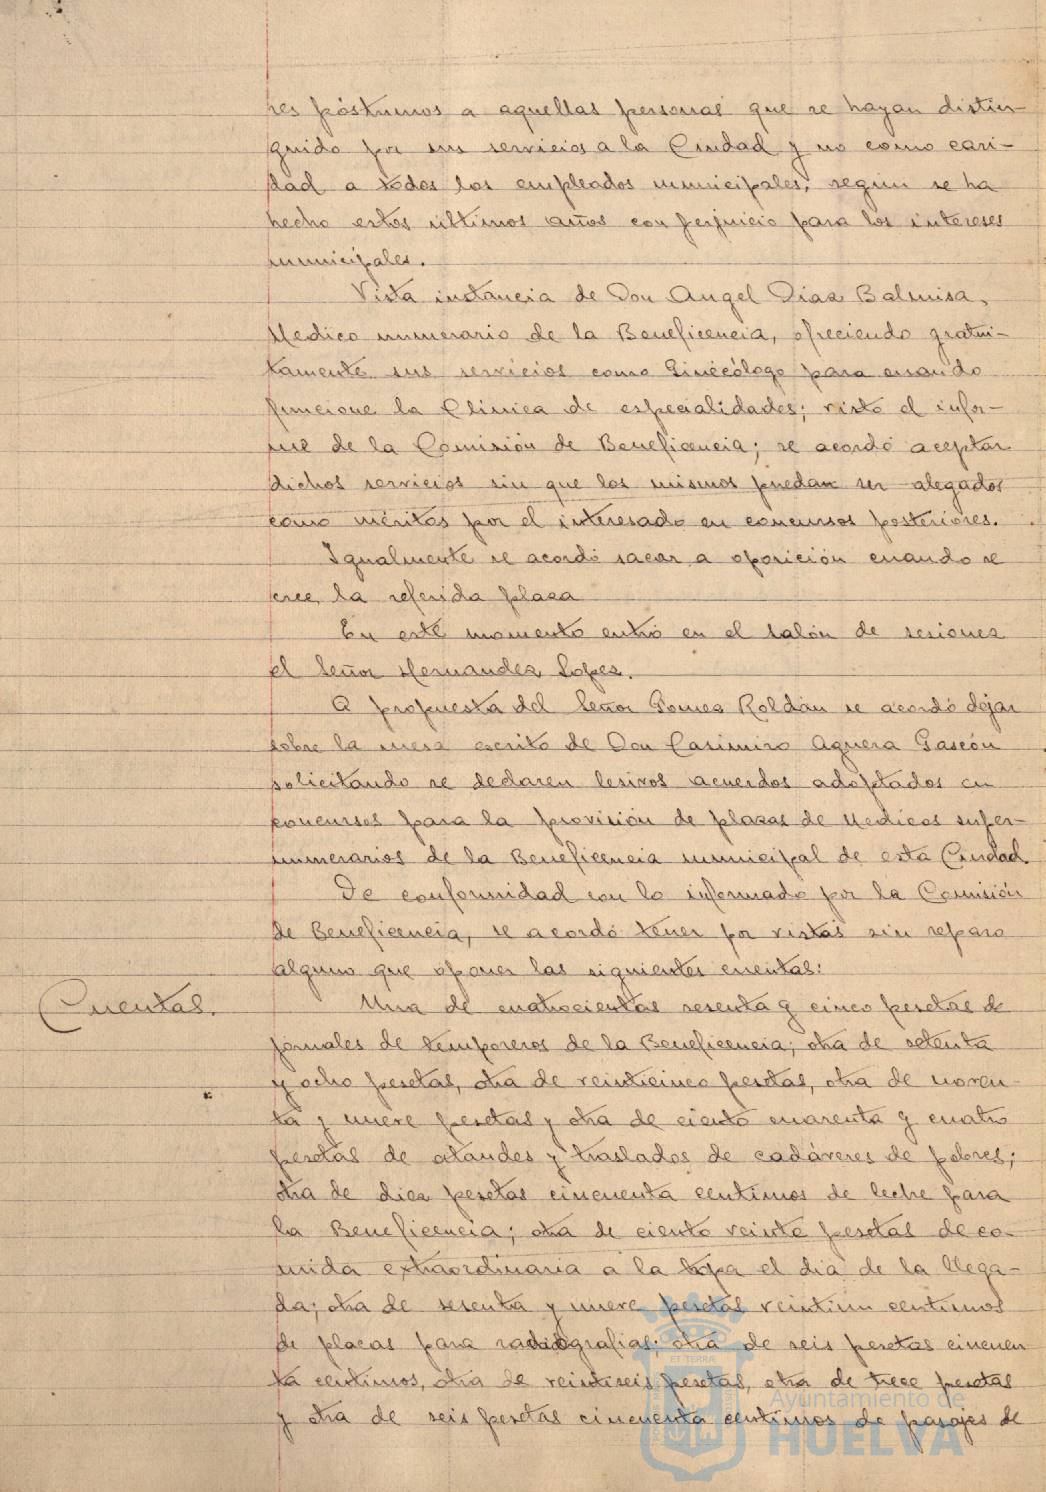 res póstumos a aquellas personas que se hayan distin-
guido por sus servicios a la Ciudad y no como cari-
dad a todos los empleados municipales; según se ha
hecho estos últimos años con perjuicio para los intereses
municipales.
Vista instancia de Don Angel Diaz Balmisa,
Medico numerario de la Beneficencia, ofreciendo gratui-
tamente sus servicios como Ginecólogo para cuando
funcione la Clínica de especialidades; visto el infor-
me de la Comisión de Beneficencia; se acordó aceptar
dichos servicios sin que los mismos puedan ser alegados
como méritos por el interesado en concursos posteriores.
Igualmente se acordó sacar a oposición cuando se
cree la referida plaza
En este momento entró en el salón de sesiones
el Señor Hernandez Lopez.
A propuesta del Señor Gomez Roldán se acordó dejar
sobre la mesa escrito de Don Casimiro Aguera Gascón
solicitando se declaren lesivos acuerdos adoptados en
concursos para la provisión de plazas de Medicos super-
numerarios de la Beneficencia municipal de esta Ciudad.
De conformidad con lo informado por la Comisión
de Beneficencia, se acordó tener por vistas sin reparo
alguno que oponer las siguientes cuentas:
Cuentas. Una de cuatrocientas sesenta y cinco pesetas de
jornales de temporeros de la Beneficencia; otra de setenta
y ocho pesetas, otra de veinticinco pesetas, otra de noven-
ta y nueve pesetas y otra de ciento cuarenta y cuatro
pesetas de ataudes y traslados de cadáveres de pobres;
otra de diez pesetas cincuenta centimos de leche para
la Beneficencia; otra de ciento veinte pesetas de co-
mida extraordinaria a la tropa el dia de la llega-
da; otra de sesenta y nueve pesetas veintiun centimos
de placas para radiografias; otra de seis pesetas cincuen
ta centimos, otra de veintiseis pesetas, otra de trece pesetas
y otra de seis pesetas cincuenta centimos de pasajes de
ET TERRA
Ayuntamiento de
HUELVA